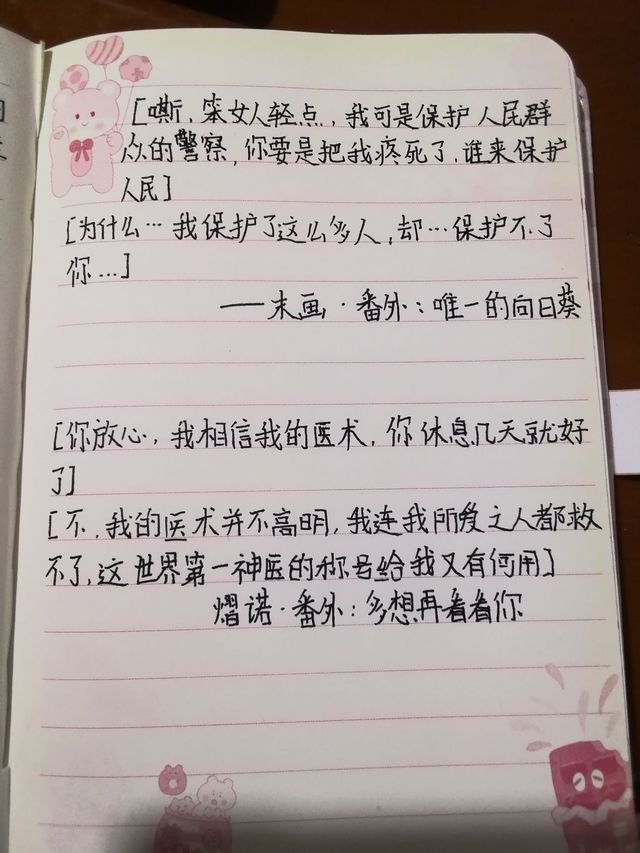 [嘶，笨女人轻点，我可是保护人民群
众的警察，你要是把我疼死了，谁来保护
人民]
[为什么…我保护了这么多人，却…保护不了
你…]
——末画·番外：唯一的向日葵
[你放心，我相信我的医术，你休息几天就好
了]
[不，我的医术并不高明，我连我所爱之人都救
不了，这世界第一神医的称号给我又有何用]
熠诺·番外：多想再看看你